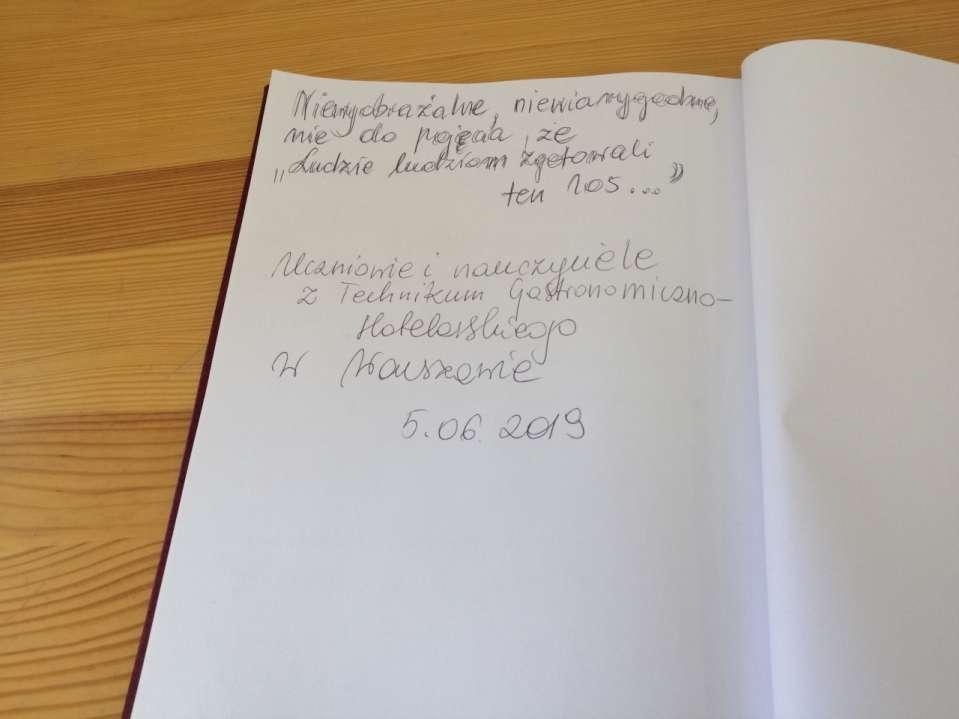 Niewyobrażalne, niewiarygodne,
nie do pojęcia, że
„Ludzie ludziom zgotowali
ten los..."
Uczniowie i nauczyciele
z Technikum Gastronomiczno-
Hotelarskiego
w Warszawie
5.06.2019